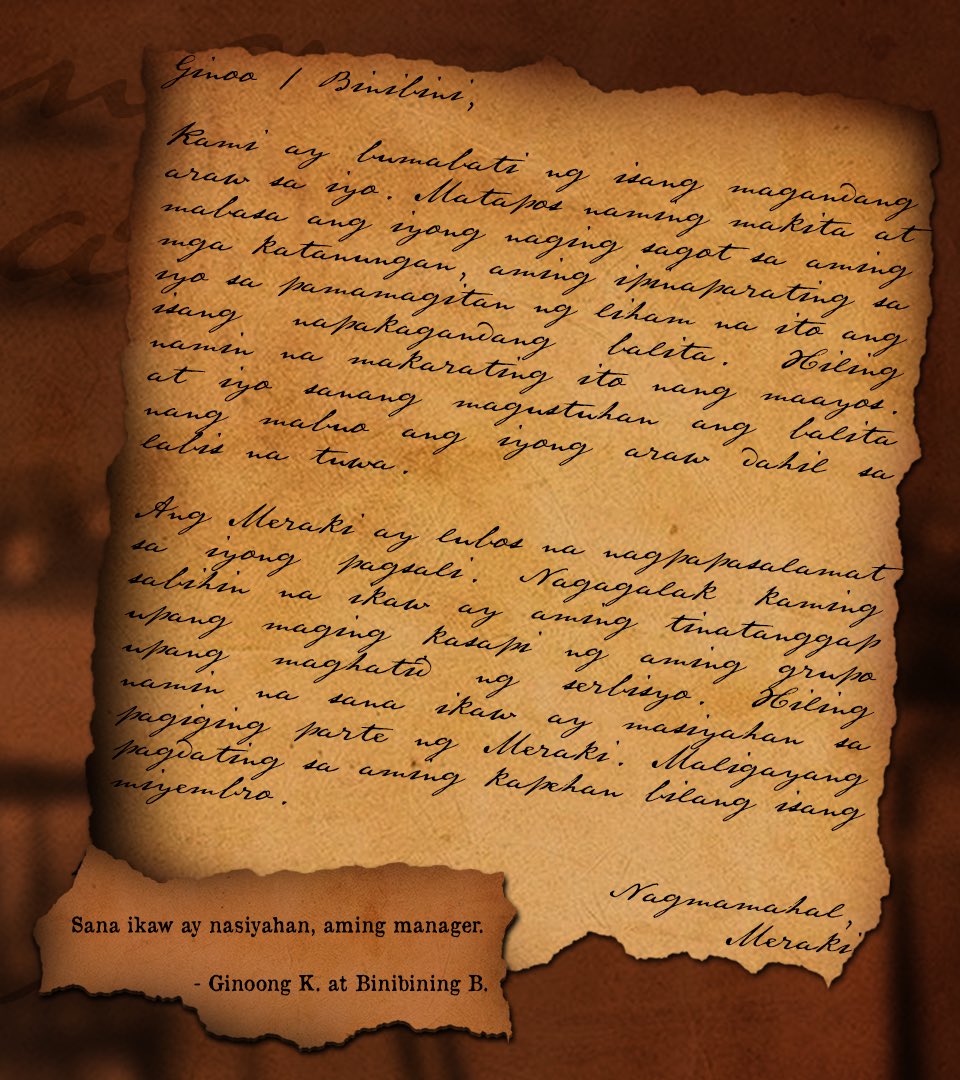 Ginoo / Binibini,
Kami ay bumabati ng isang magandang
araw sa iyo. Matapos naming makita at
mabasa ang iyong naging sagot sa aming
mga katanungan, aming ipinaparating sa
iyo sa pamamagitan ng liham na ito ang
isang napakagandang balita. Hiling
namin na makarating ito nang maayos.
at iyo sanang magustuhan ang balita
nang mabuo ang iyong araw dahil sa
labis na tuwa.
Ang Meraki ay lubos na nagpapasalamat
sa iyong pagsali. Nagagalak kaming
sabihin na ikaw ay aming tinatanggap
upang maging kasapi ng aming grupo
upang maghatid ng serbisyo. Hiling
namin na sana ikaw ay masiyahan sa
pagiging parte ng Meraki. Maligayang
pagdating sa aming kapehan bilang isang
miyembro.
Nagmamahal,
Meraki
Sana ikaw ay nasiyahan, aming manager.
- Ginoong K. at Binibining B.